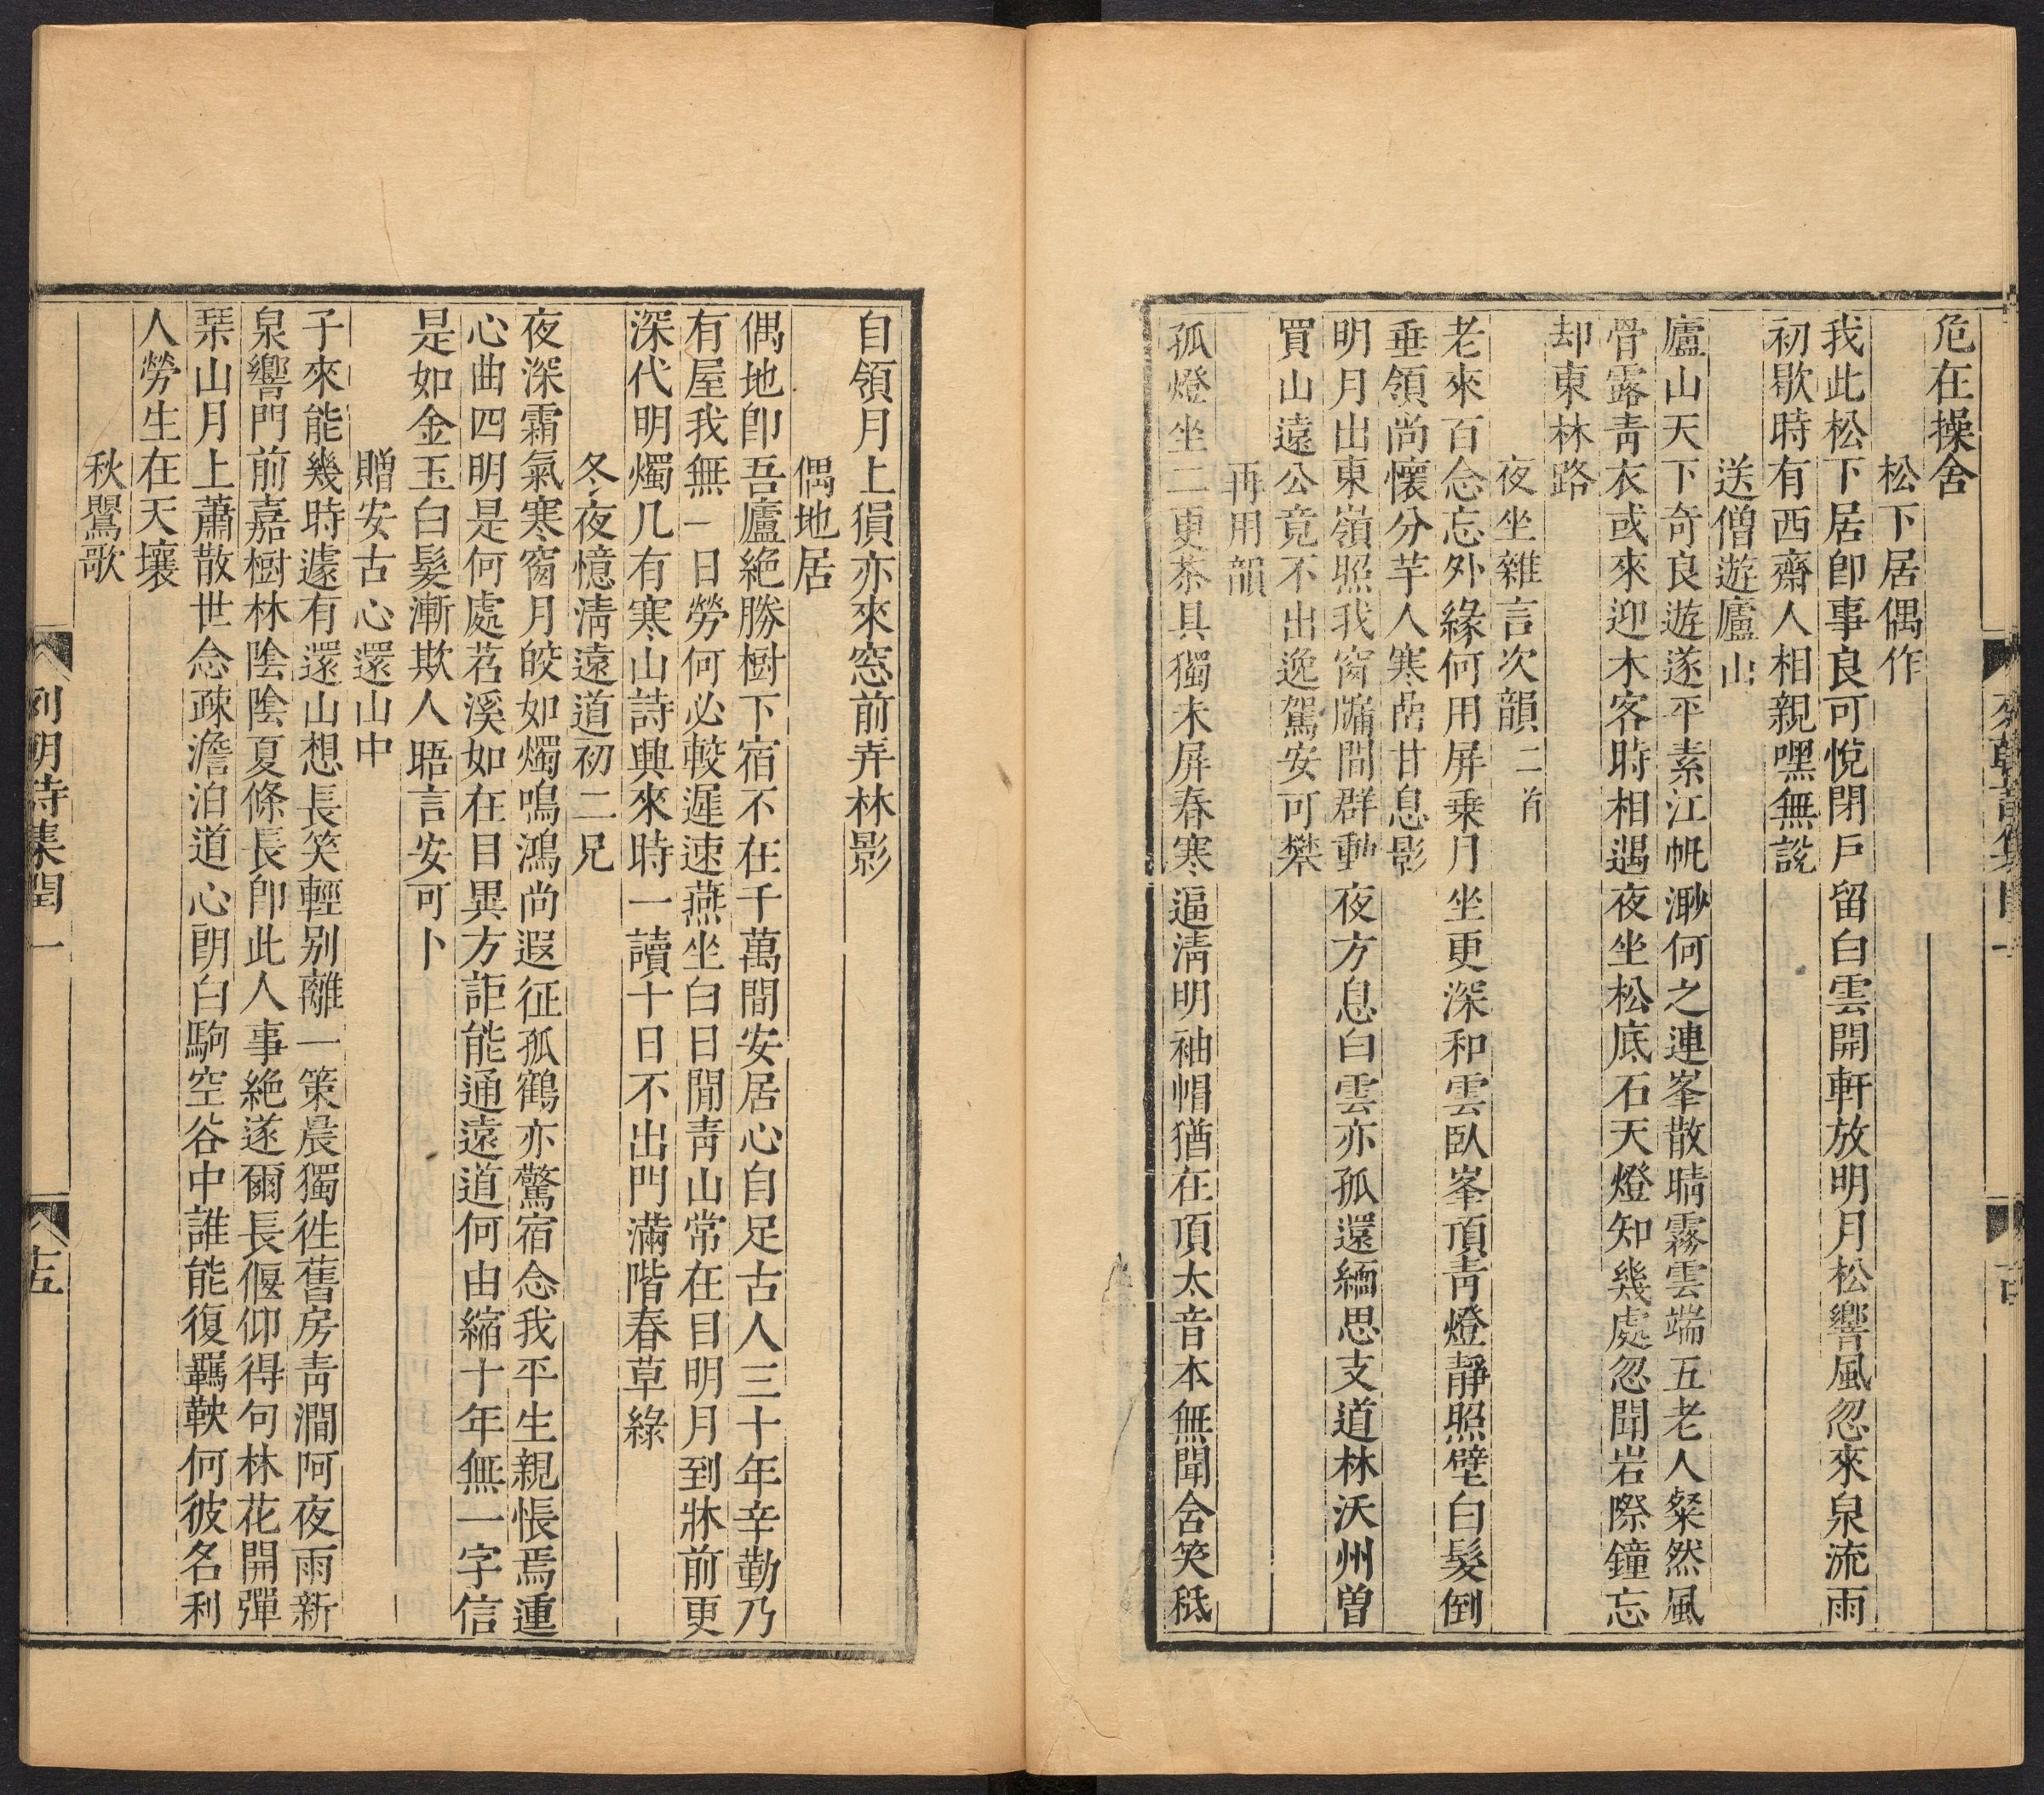 危在操舍
松下居偶作
我此松下居卽事良可悅閉戸留白雲開軒放明月松響風忽來泉流雨
初歇時有西齋人相親嘿無說
送僧遊廬山
廬山天下奇良遊遂平素江帆渺何之連峯散晴霧雲端五老人粲然風
骨露靑衣或來迎木客時相遇夜坐松底石天燈知幾處忽聞岩際鐘忘
却東林路
夜坐雜言次韻二首
老來百念忘外緣何用屏乗月坐更深和雲臥峯頂靑燈靜照壁白髮倒
垂領尚懷分芋人寒嵒甘息影
明月出東嶺照我窗牖間群動夜方息白雲亦孤還緬思支道林沃州曽
買山遠公竟不出逸駕安可攀
再用韻
孤燈坐二更茶具獨未屏春寒逼淸明袖帽猶在頂太音本無聞舍笑秪
自領月上狷亦來窓前弄林影
偶地居
偶地卽吾廬絶勝樹下宿不在千萬間安居心自足古人三十年辛勤乃
有屋我無一日勞何必較遲速燕坐白日閒靑山常在目明月到牀前更
深代明燭几有寒山詩興來時一讀十日不出門滿階春草綠
冬夜憶淸遠道初二兄
夜深霜氣寒窗月皎如燭鳴鴻尚遐征孤鶴亦驚宿念我平生親悵焉連
心曲四明是何處苕溪如在目異方詎能通遠道何由縮十年無一字信
是如金玉白髮漸欺人晤言安可卜
贈安古心還山中
子來能幾時遽有還山想長笑輕别離一策晨獨徃舊房靑澗阿夜雨新
泉響門前嘉樹林陰陰夏條長卽此人事絶遂爾長偃仰得句林花開彈
琹山月上蕭散世念疎澹泊道心朗白駒空谷中誰能復羈鞅何彼名利
人勞生在天壤
秋鸎歌
列朝詩集閏一
十五